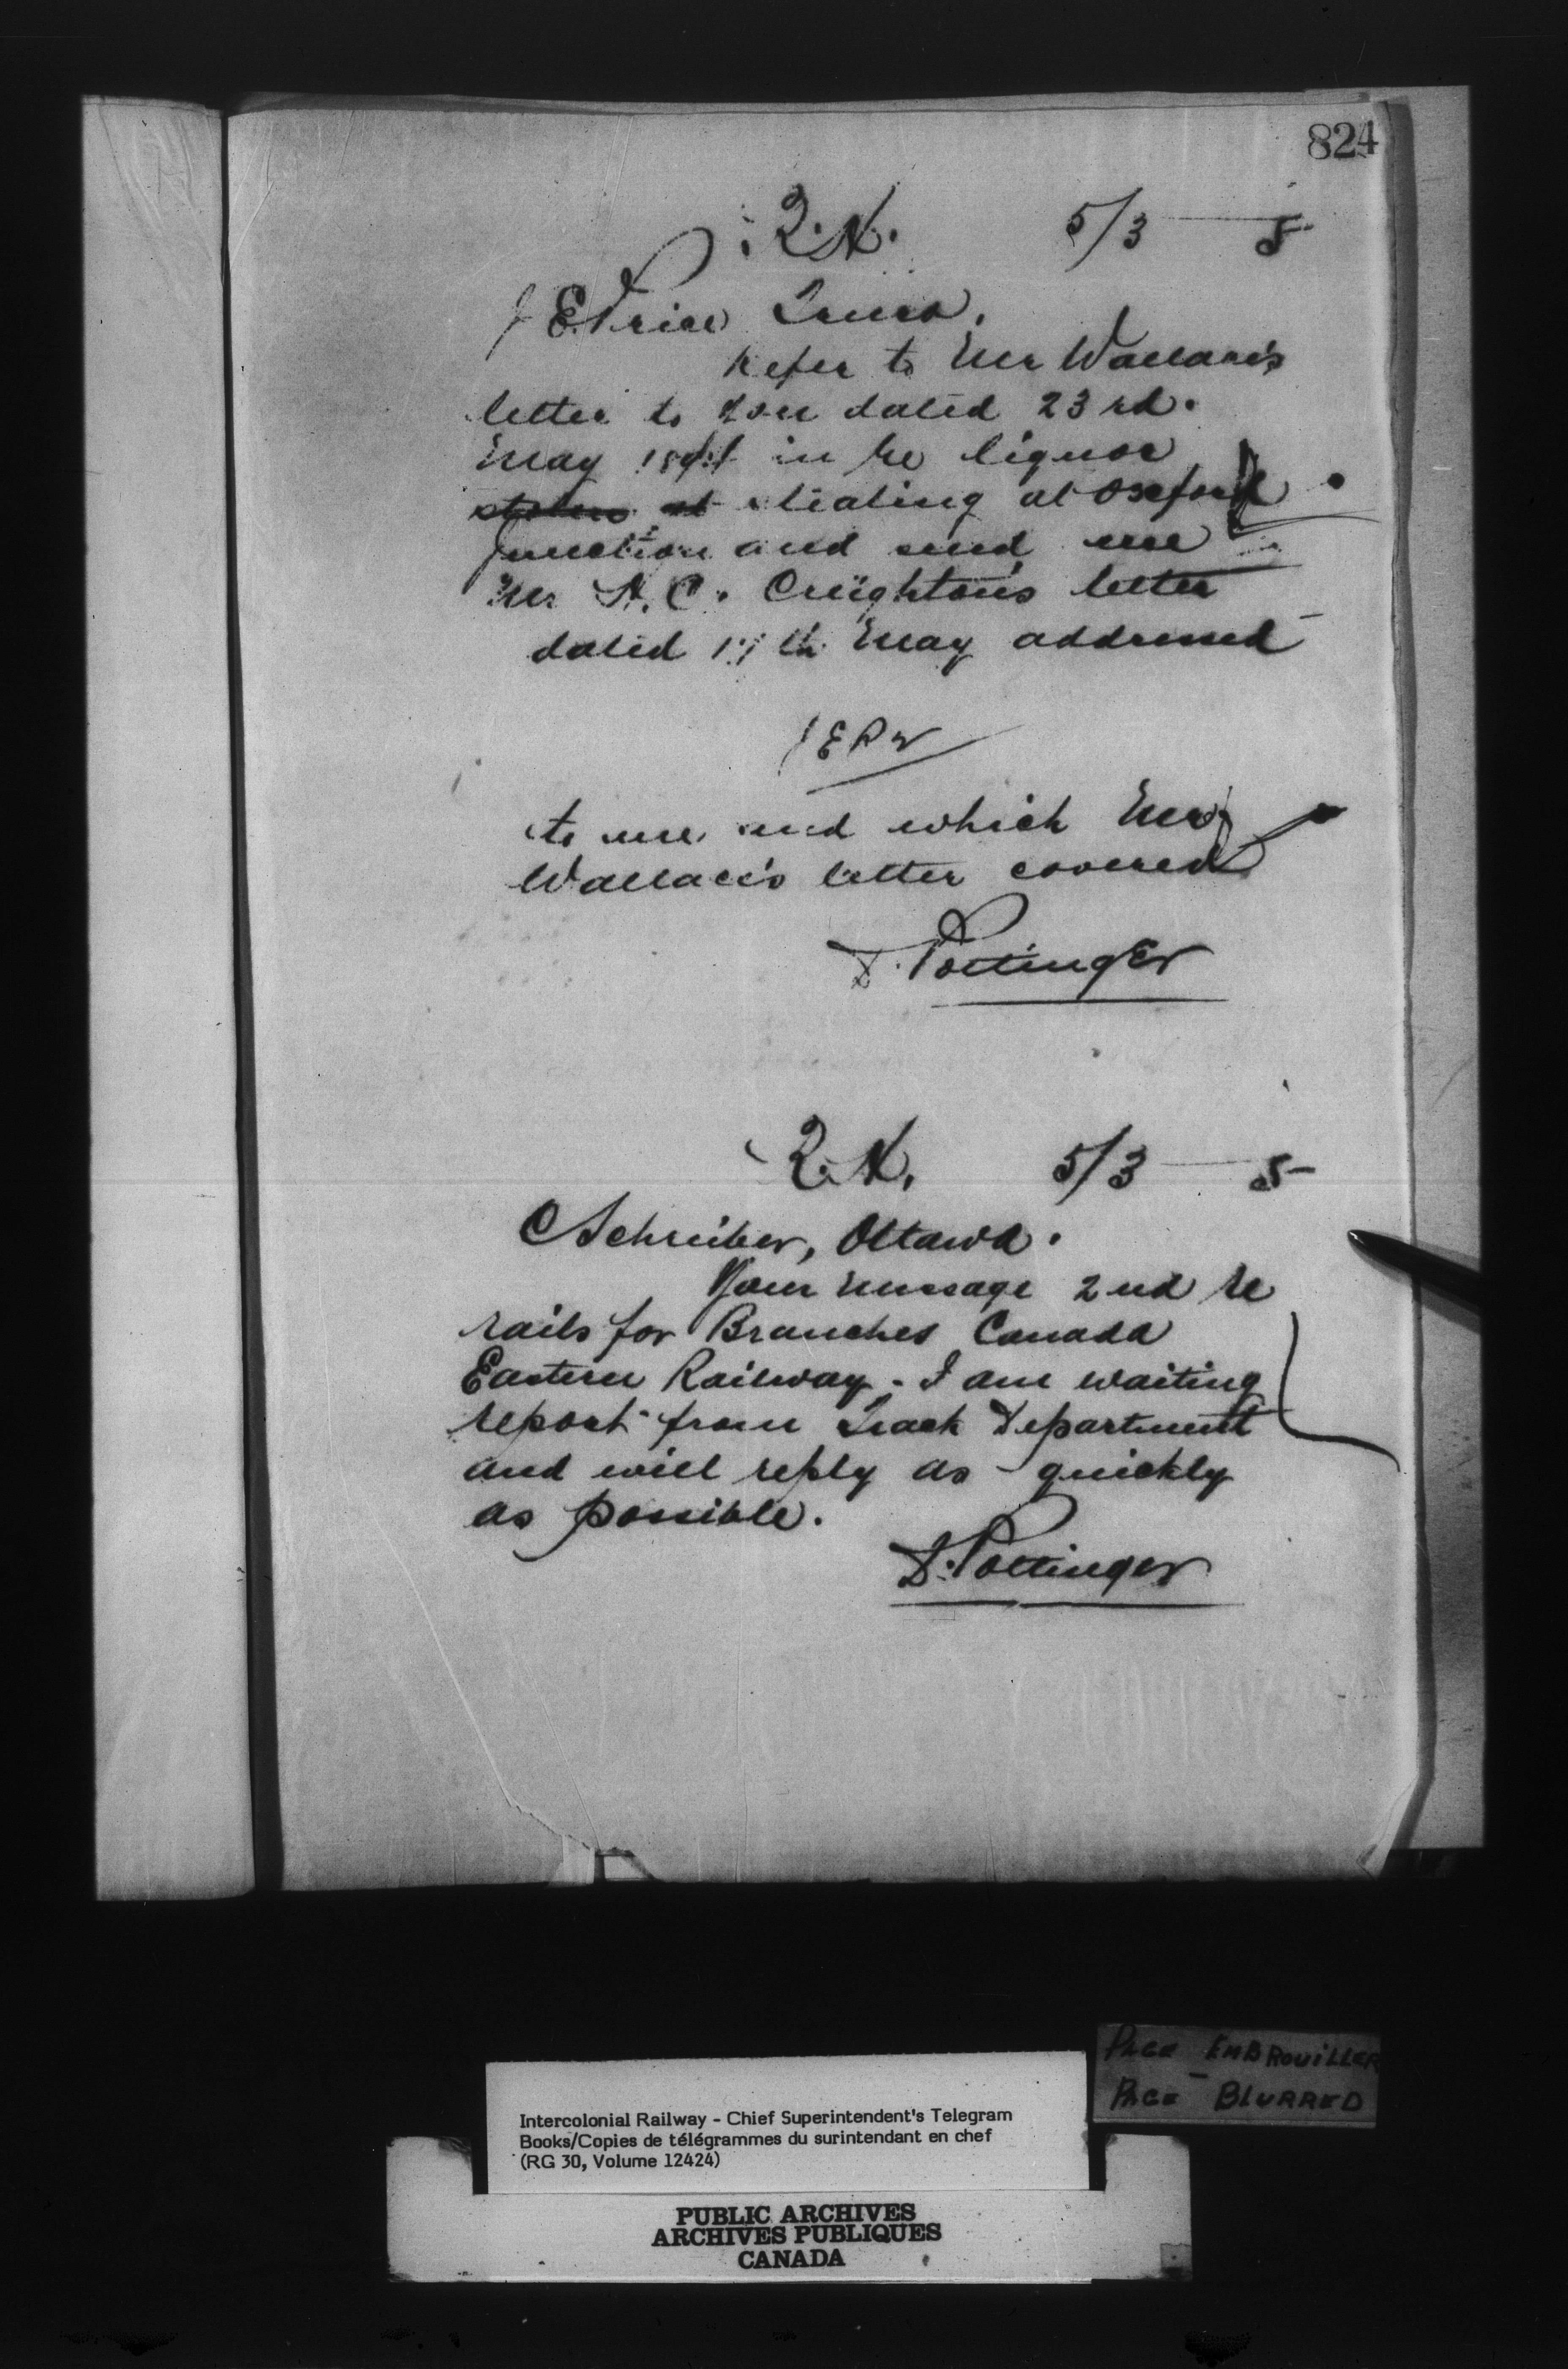 824
5/3 — 5
J E Price Truro.
Refer to Mr Wallace's
letter to you dated 23rd.
May in re liquor
stealing at Oxford
Junction and send me
Mr A. C. Creighton's letter
dated May addressed
to me and which Mr
Wallace's letter covered
D. Pottinger
5/3 — 5
C Schreiber, Ottawa.
Your message 2nd re
rails for Branches Canada
Eastern Railway - I am waiting
report from Track Department
and will reply as quickly
as possible.
D. Pottinger
PAGE EMBROUILLER
PAGE BLURRED
Intercolonial Railway - Chief Superintendent's Telegram
Books/Copies de télégrammes du surintendant en chef
(RG 30, Volume 12424)
PUBLIC ARCHIVES
ARCHIVES PUBLIQUES
CANADA